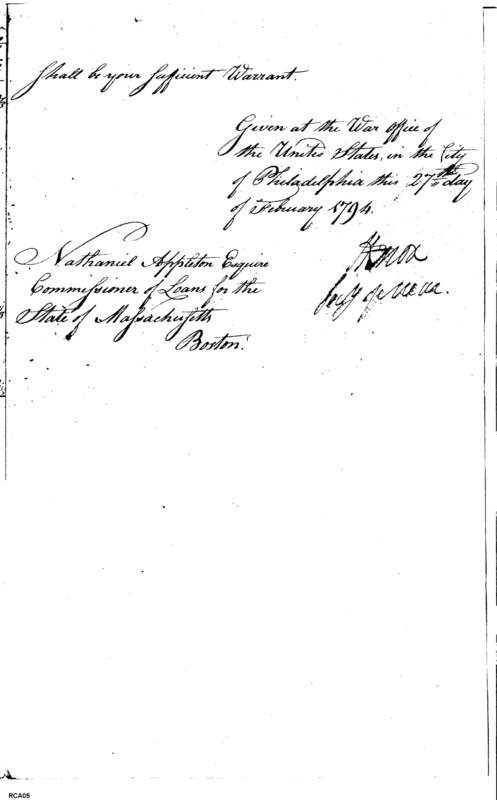 Shall be your Sufficient Warrant.
Given at the War office of
the United States, in the City
of Philadelphia this 27th day
of February 1794.
HKnox
Secy of War.
Nathaniel Appleton Esquire
Commissioner of Loans for the
State of Massachusetts
Boston.
RCA05